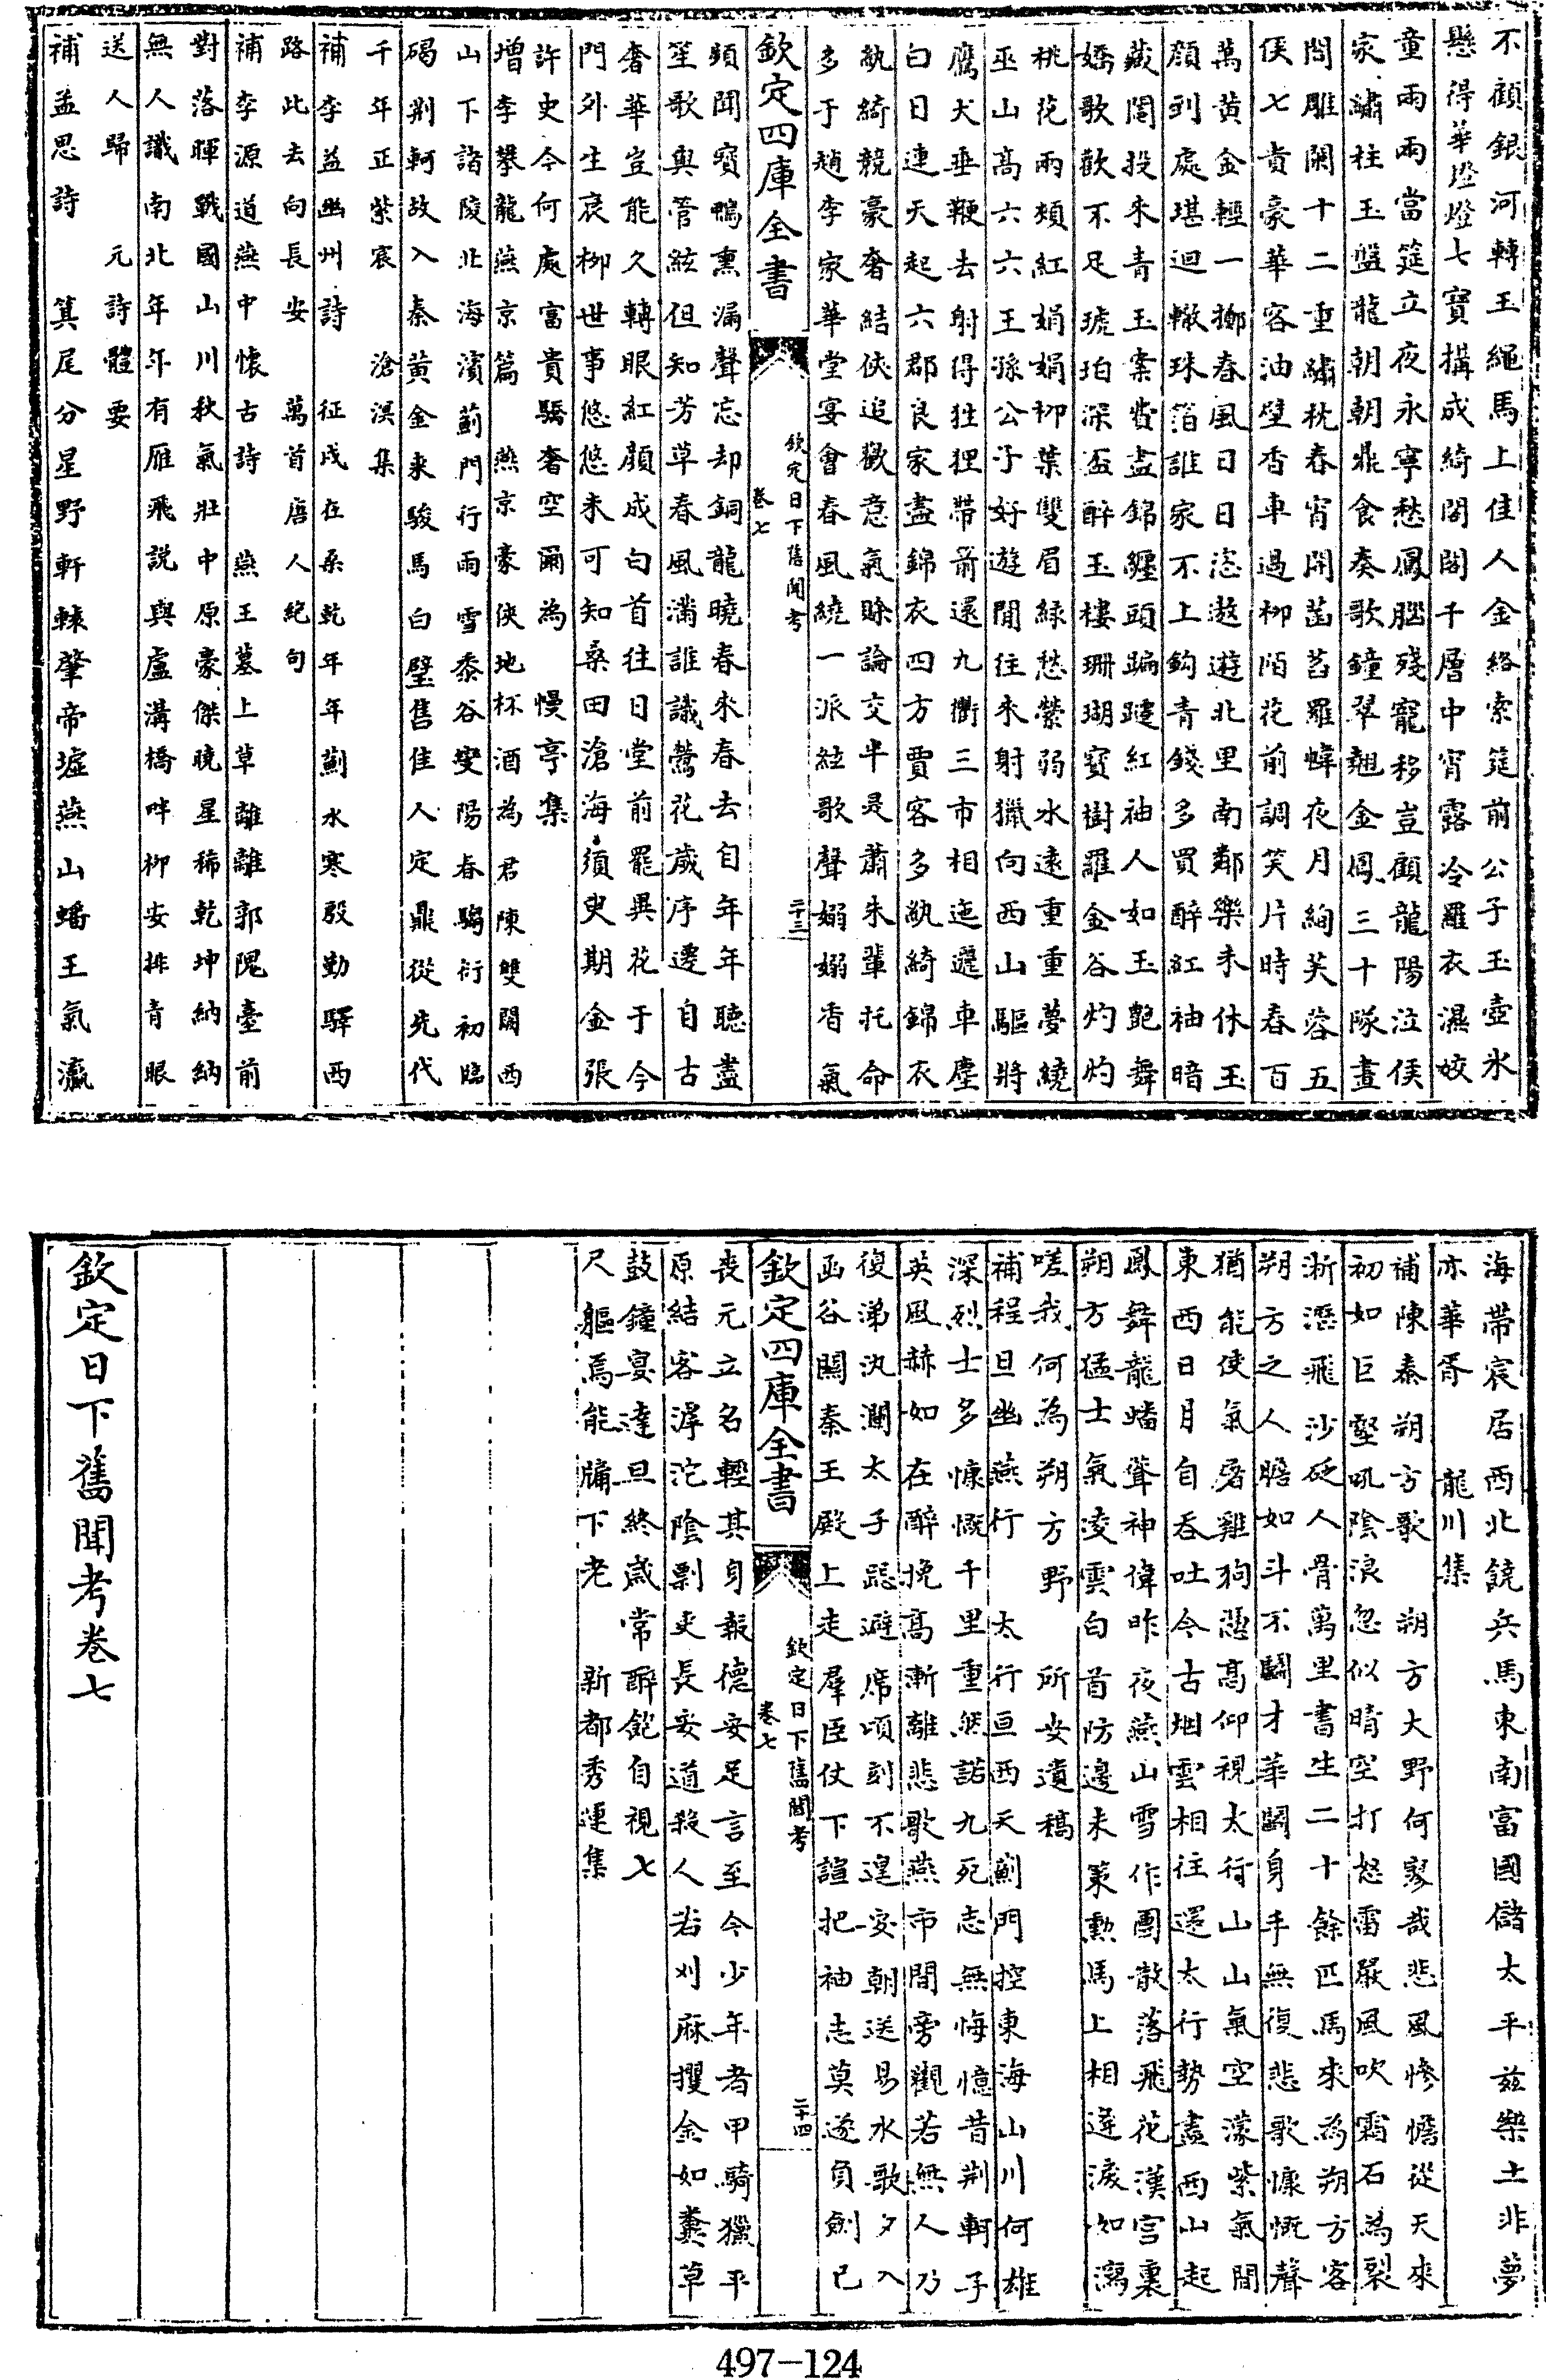 不顧銀河轉玉繩馬上佳人金絡索筵前公子玉壺氷
懸得華燈燈七寶搆成綺閣閣千層中宵露冷羅衣濕姣
童兩兩當筵立夜永寧愁鳳腦殘寵移豈顧龍陽泣侯
家繡柱玉盤龍朝朝鼎食奏歌鐘翠翹金鳳三十隊畫
閣雕闌十二重繡枕春宵開菡萏羅幃夜月絢芙蓉五
侯七貴豪華客油壁香車過柳陌花前調笑片時春百
萬黄金輕一擲春風日日恣遨遊北里南鄰樂未休玉
顔到處堪迴轍珠箔誰家不上鈎青錢多買醉紅袖暗
藏鬮投來青玉案費盡錦纒頭蹁躚紅袖人如玉艶舞
嬌歌歡不足琥珀深盃醉玉樓珊瑚寳樹羅金谷灼灼
桃花兩頰紅娟娟柳葉雙眉緑愁縈弱水逺重重夢繞
巫山髙六六王孫公子好遊閒往來射獵向西山驅將
鷹犬垂鞭去射得狌狸帶箭還九衢三市相迤邐車塵
白日連天起六郡良家盡錦衣四方賈客多紈綺錦衣
紈綺競豪奢結俠追歡意氣賖論交半是蕭朱輩托命
多于趙李家華堂宴會春風繞一派絃歌聲嫋嫋香氣
欽定四庫全書
欽定日下舊聞考
卷七
二十三
頻聞寳鴨熏漏聲忘却銅龍曉春來春去自年年聽盡
笙歌與管絃但知芳草春風滿誰識鶯花歳序遷自古
奢華豈能久轉眼紅顔成白首往日堂前罷異花于今
門外生衰柳世事悠悠未可知桑田滄海須臾期金張
許史今何處富貴驕奢空爾為　慢亭集
増李攀龍燕京篇　燕京豪俠地杯酒為君陳雙闕西
山下諸陵北海濱薊門行雨雪黍谷變陽春騶衍初臨
碣荆軻故入秦黄金來駿馬白璧售佳人定鼎從先代
千年正紫宸　滄溟集
補李益幽州詩　征戍在桑乾年年薊水寒殷勤驛西
路此去向長安　萬首唐人絶句
補李源道燕中懷古詩　燕王墓上草離離郭隗臺前
對落暉戰國山川秋氣壯中原豪傑曉星稀乾坤納納
無人識南北年年有雁飛說與盧溝橋畔柳安排青眼
送人歸　元詩體要
補孟思詩　箕尾分星野軒轅肇帝墟燕山蟠王氣瀛
海帶宸居西北饒兵馬東南富國儲太平兹樂土非夢
亦華胥　龍川集
補陳泰朔方歌　朔方大野何寥哉悲風慘憺從天來
初如巨壑吼陰浪忽似晴空打怒雷嚴風吹霜石為裂
淅瀝飛沙砭人骨萬里書生二十餘匹馬來為朔方客
朔方之人膽如斗不鬬才華鬬身手無復悲歌慷慨聲
猶能使氣屠雞狗憑髙仰視太行山山氣空濛紫氣間
東西日月自吞吐今古烟雲相往還太行勢盡西山起
鳳舞龍蟠聳神偉昨夜燕山雪作團散落飛花漢宫裏
朔方猛士氣凌雲白首防邊未策勲馬上相逢淚如㵝
嗟我何為朔方野　所安遺稿
補程旦幽燕行　太行亘西天薊門控東海山川何雄
深烈士多慷慨千里重然諾九死志無悔憶昔荆軻子
英風赫如在醉挽髙漸離悲歌燕市間旁觀若無人乃
復涕汍瀾太子跽避席頃刻不遑安朝送易水歌夕入
函谷關秦王殿上走羣臣仗下諠把袖志莫遂負劍已
欽定四庫全書
欽定日下舊聞考
卷七
二十四
喪元立名輕其身報德安足言至今少年者甲騎獵平
原結客滹沱陰剽吏長安道殺人若刈麻攫金如糞草
鼓鐘宴達旦終歳常醉飽自視七
尺軀焉能牖下老　新都秀運集
欽定日下舊聞考卷七
497-124